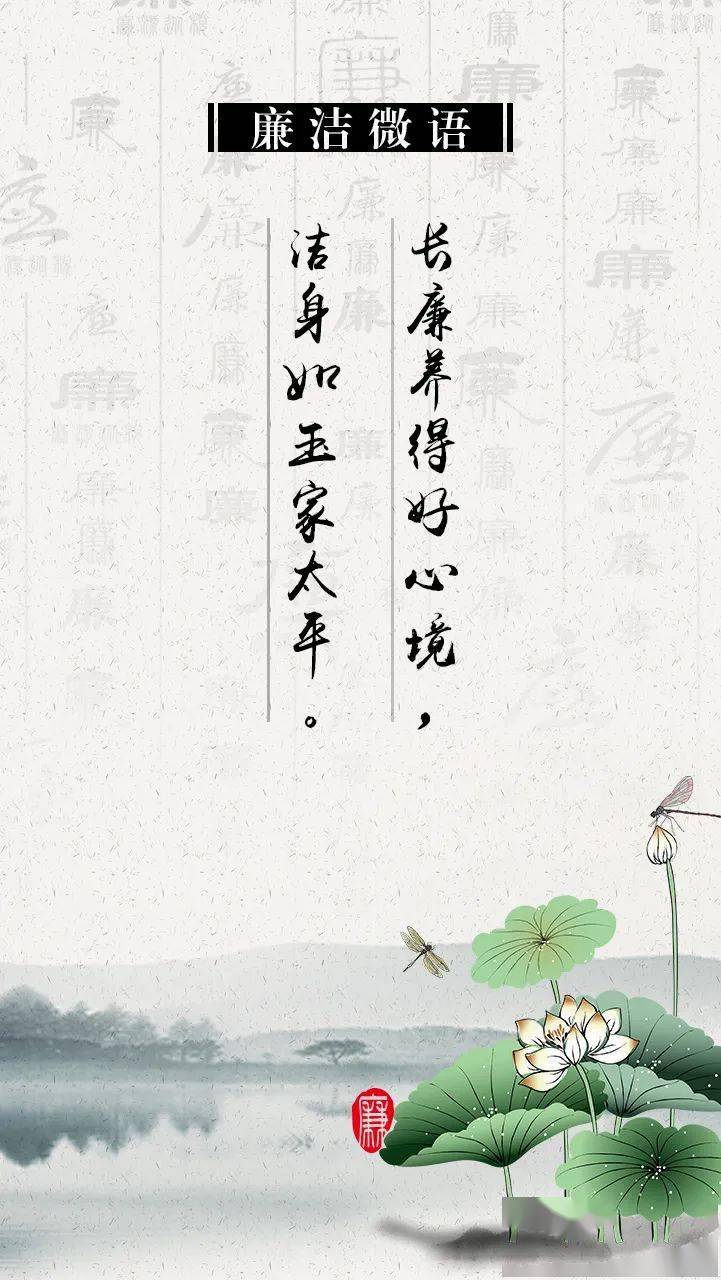 廉洁微语
长廉养得好心境，
洁身如玉家太平。
廉